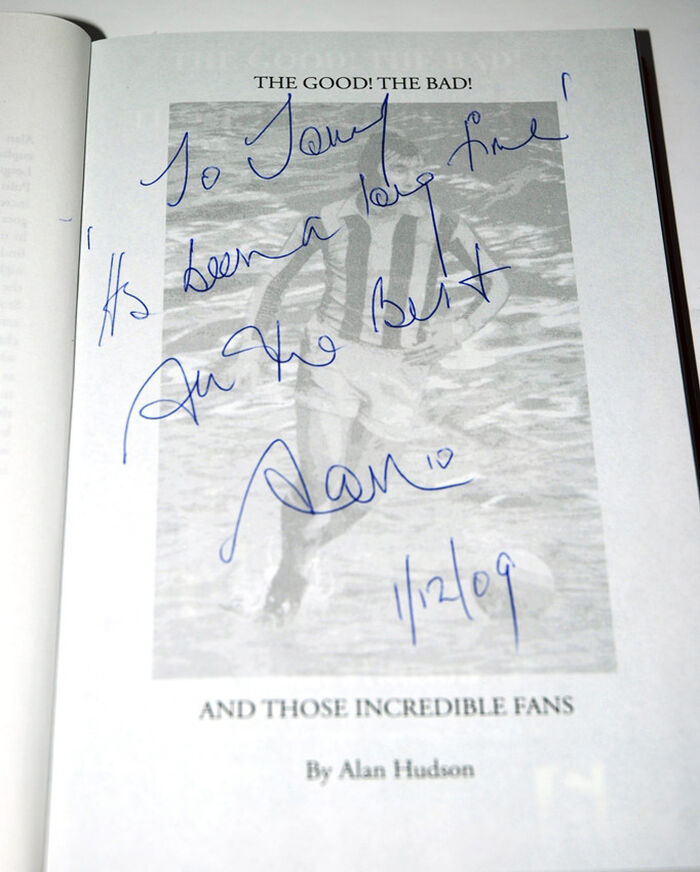 THE GOOD! THE BAD!
To Tony
'It's been a long time'
All the Best
Alan 10
1/12/09
AND THOSE INCREDIBLE FANS
By Alan Hudson